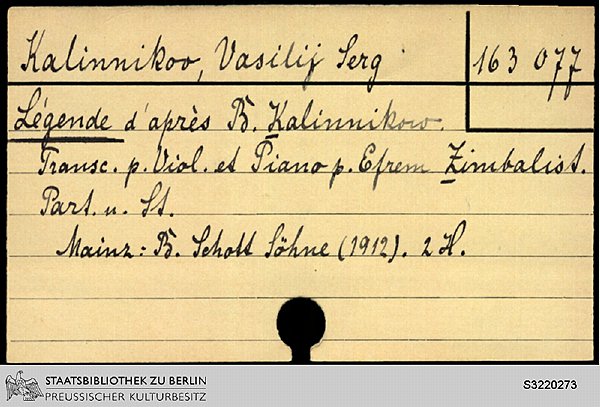 Kalinnikov, Vasilij Serg 163 077
Légende d'après B. Kalinnikow.
Transc. p. Viol. et Piano p. Efrem Zimbalist.
Part. u. St.
Mainz: B. Schott Söhne (1912). 2 H.
STAATSBIBLIOTHEK ZU BERLIN
PREUSSISCHER KULTURBESITZ
S3220273